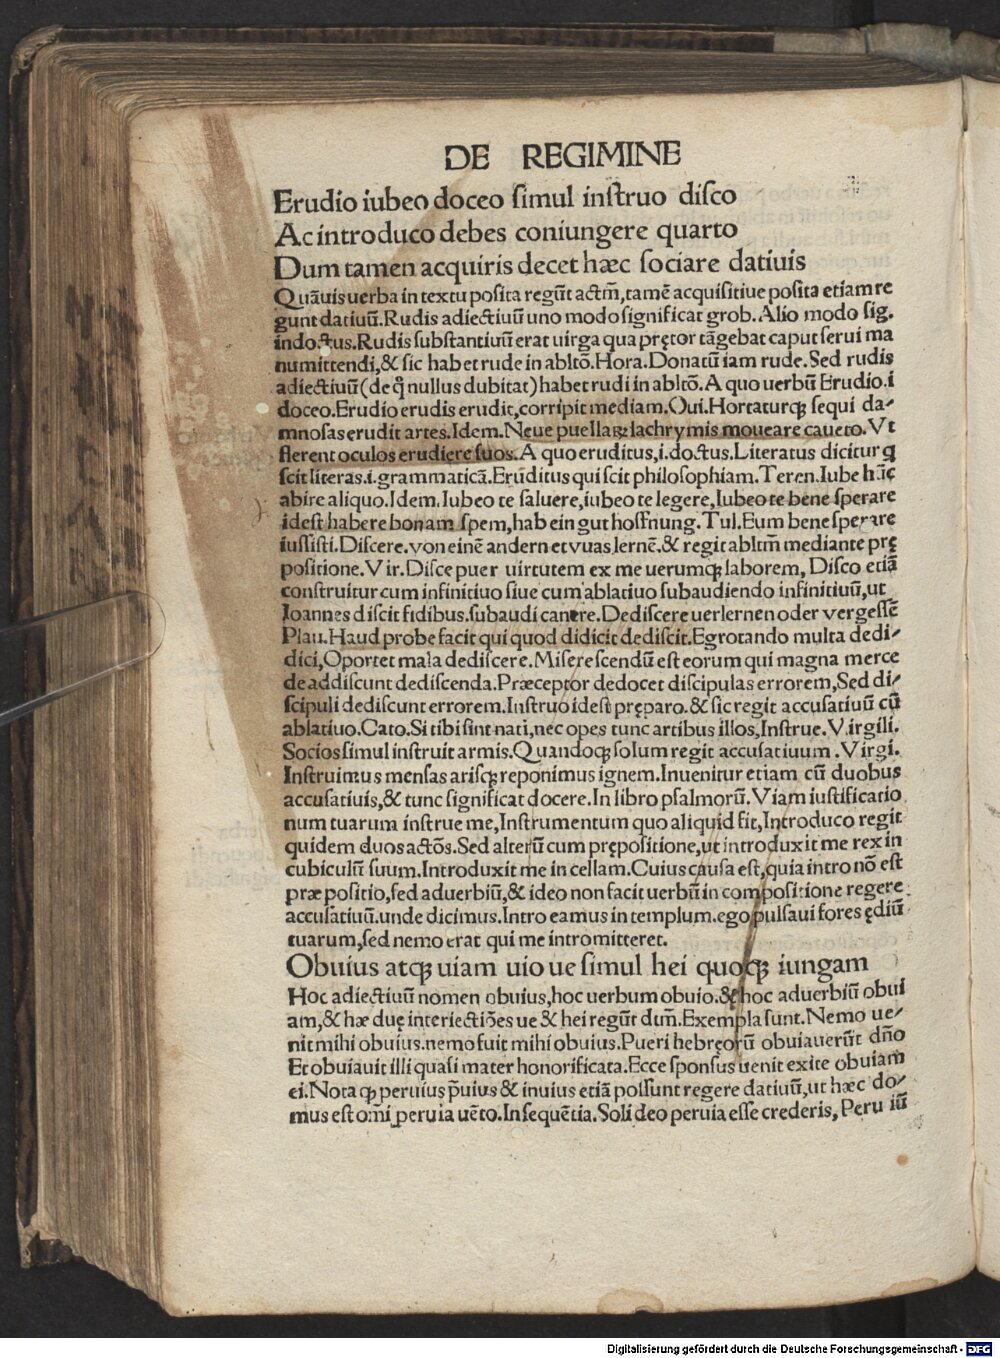 DE REGIMINE
Erudio iubeo doceo ſimul inſtruo diſco
Ac introduco debes coniungere quarto
Dum tamen acquiris decet hæc ſociare datiuis
Quãuis uerba in textu poſita regũt actm̃, tamẽ acquiſitiue poſita etiam re
gunt datiuũ. Rudis adiectiuũ uno modo ſignificat grob. Alio modo ſig.
indoctus. Rudis ſubſtantiuũ erat uirga qua prętor tãgebat caput ſerui ma
numittendi, & ſic habet rude in abltõ. Hora. Donatũ iam rude. Sed rudis
adiectiuũ (de q̃ nullus dubitat) habet rudi in abltõ. A quo uerbũ Erudio. i
doceo. Erudio erudis erudit, corripit mediam. Oui. Hortaturqꝫ ſequi da-
mnoſas erudit artes. Idem. Neue puellaꝝ lachrymis moueare caueto. Vt
flerent oculos erudiere ſuos. A quo eruditus, i. doctus. Literatus dicitur q
ſcit literas. i. grammaticã. Eruditus qui ſcit philoſophiam. Teren. Iube hãc
abire aliquo. Idem. Iubeo te ſaluere, iubeo te legere, Iubeo te bene ſperare
ideſt habere bonam ſpem, hab ein gut hoffnung. Tul. Eum bene ſperare
iuſſiſti. Diſcere. von einẽ andern etvuas lernẽ. & regit abltm̃ mediante prę
poſitione. Vir. Diſce puer uirtutem ex me uerumqꝫ laborem, Diſco etiã
conſtruitur cum infinitiuo ſiue cum ablatiuo ſubaudiendo infinitiuũ, ut
Ioannes diſcit fidibus. ſubaudi canere. Dediſcere uerlernen oder vergeſſẽ
Plau. Haud probe facit qui quod didicit dediſcit. Egrotando multa dedi-
dici, Oportet mala dediſcere. Miſereſcendũ eſt eorum qui magna merce
de addiſcunt dediſcenda. Præceptor dedocet diſcipulas errorem, Sed di-
ſcipuli dediſcunt errorem. Inſtruo ideſt pręparo. & ſic regit accuſatiuũ cũ
ablatiuo. Cato. Si tibi ſint nati, nec opes tunc artibus illos, Inſtrue. Virgili.
Socios ſimul inſtruit armis. Quandoqꝫ ſolum regit accuſatiuum. Virgi.
Inſtruimus menſas ariſqꝫ reponimus ignem. Inuenitur etiam cũ duobus
accuſatiuis, & tunc ſignificat docere. In libro pſalmorũ. Viam iuſtificatio
num tuarum inſtrue me, Inſtrumentum quo aliquid fit, Introduco regit
quidem duos actõs. Sed alterũ cum prępoſitione, ut introduxit me rex in
cubiculũ ſuum. Introduxit me in cellam. Cuius cauſa eſt, quia intro nõ eſt
præpoſitio, ſed aduerbiũ, & ideo non facit uerbũ in compoſitione regere
accuſatiuũ. unde dicimus. Intro eamus in templum. ego pulſaui fores ędiũ
tuarum, ſed nemo erat qui me intromitteret.
Obuius atqꝫ uiam uio ue ſimul hei quoqꝫ iungam
Hoc adiectiuũ nomen obuius, hoc uerbum obuio. & hoc aduerbiũ obui
am, & hæ duę interiectiões ue & hei regũt dm̃. Exempla ſunt. Nemo ue-
nit mihi obuius. nemo fuit mihi obuius. Pueri hebręorũ obuiauerũt dño
Et obuiauit illi quaſi mater honorificata. Ecce ſponſus uenit exite obuiam
ei. Nota qꝫ peruius p̃uius & inuius etiã poſſunt regere datiuũ, ut hæc do-
mus eſt om̃i peruia uẽto. In ſequẽtia. Soli deo peruia eſſe crederis, Peru iũ
Digitalisierung gefördert durch die Deutsche Forschungsgemeinschaft - DFG